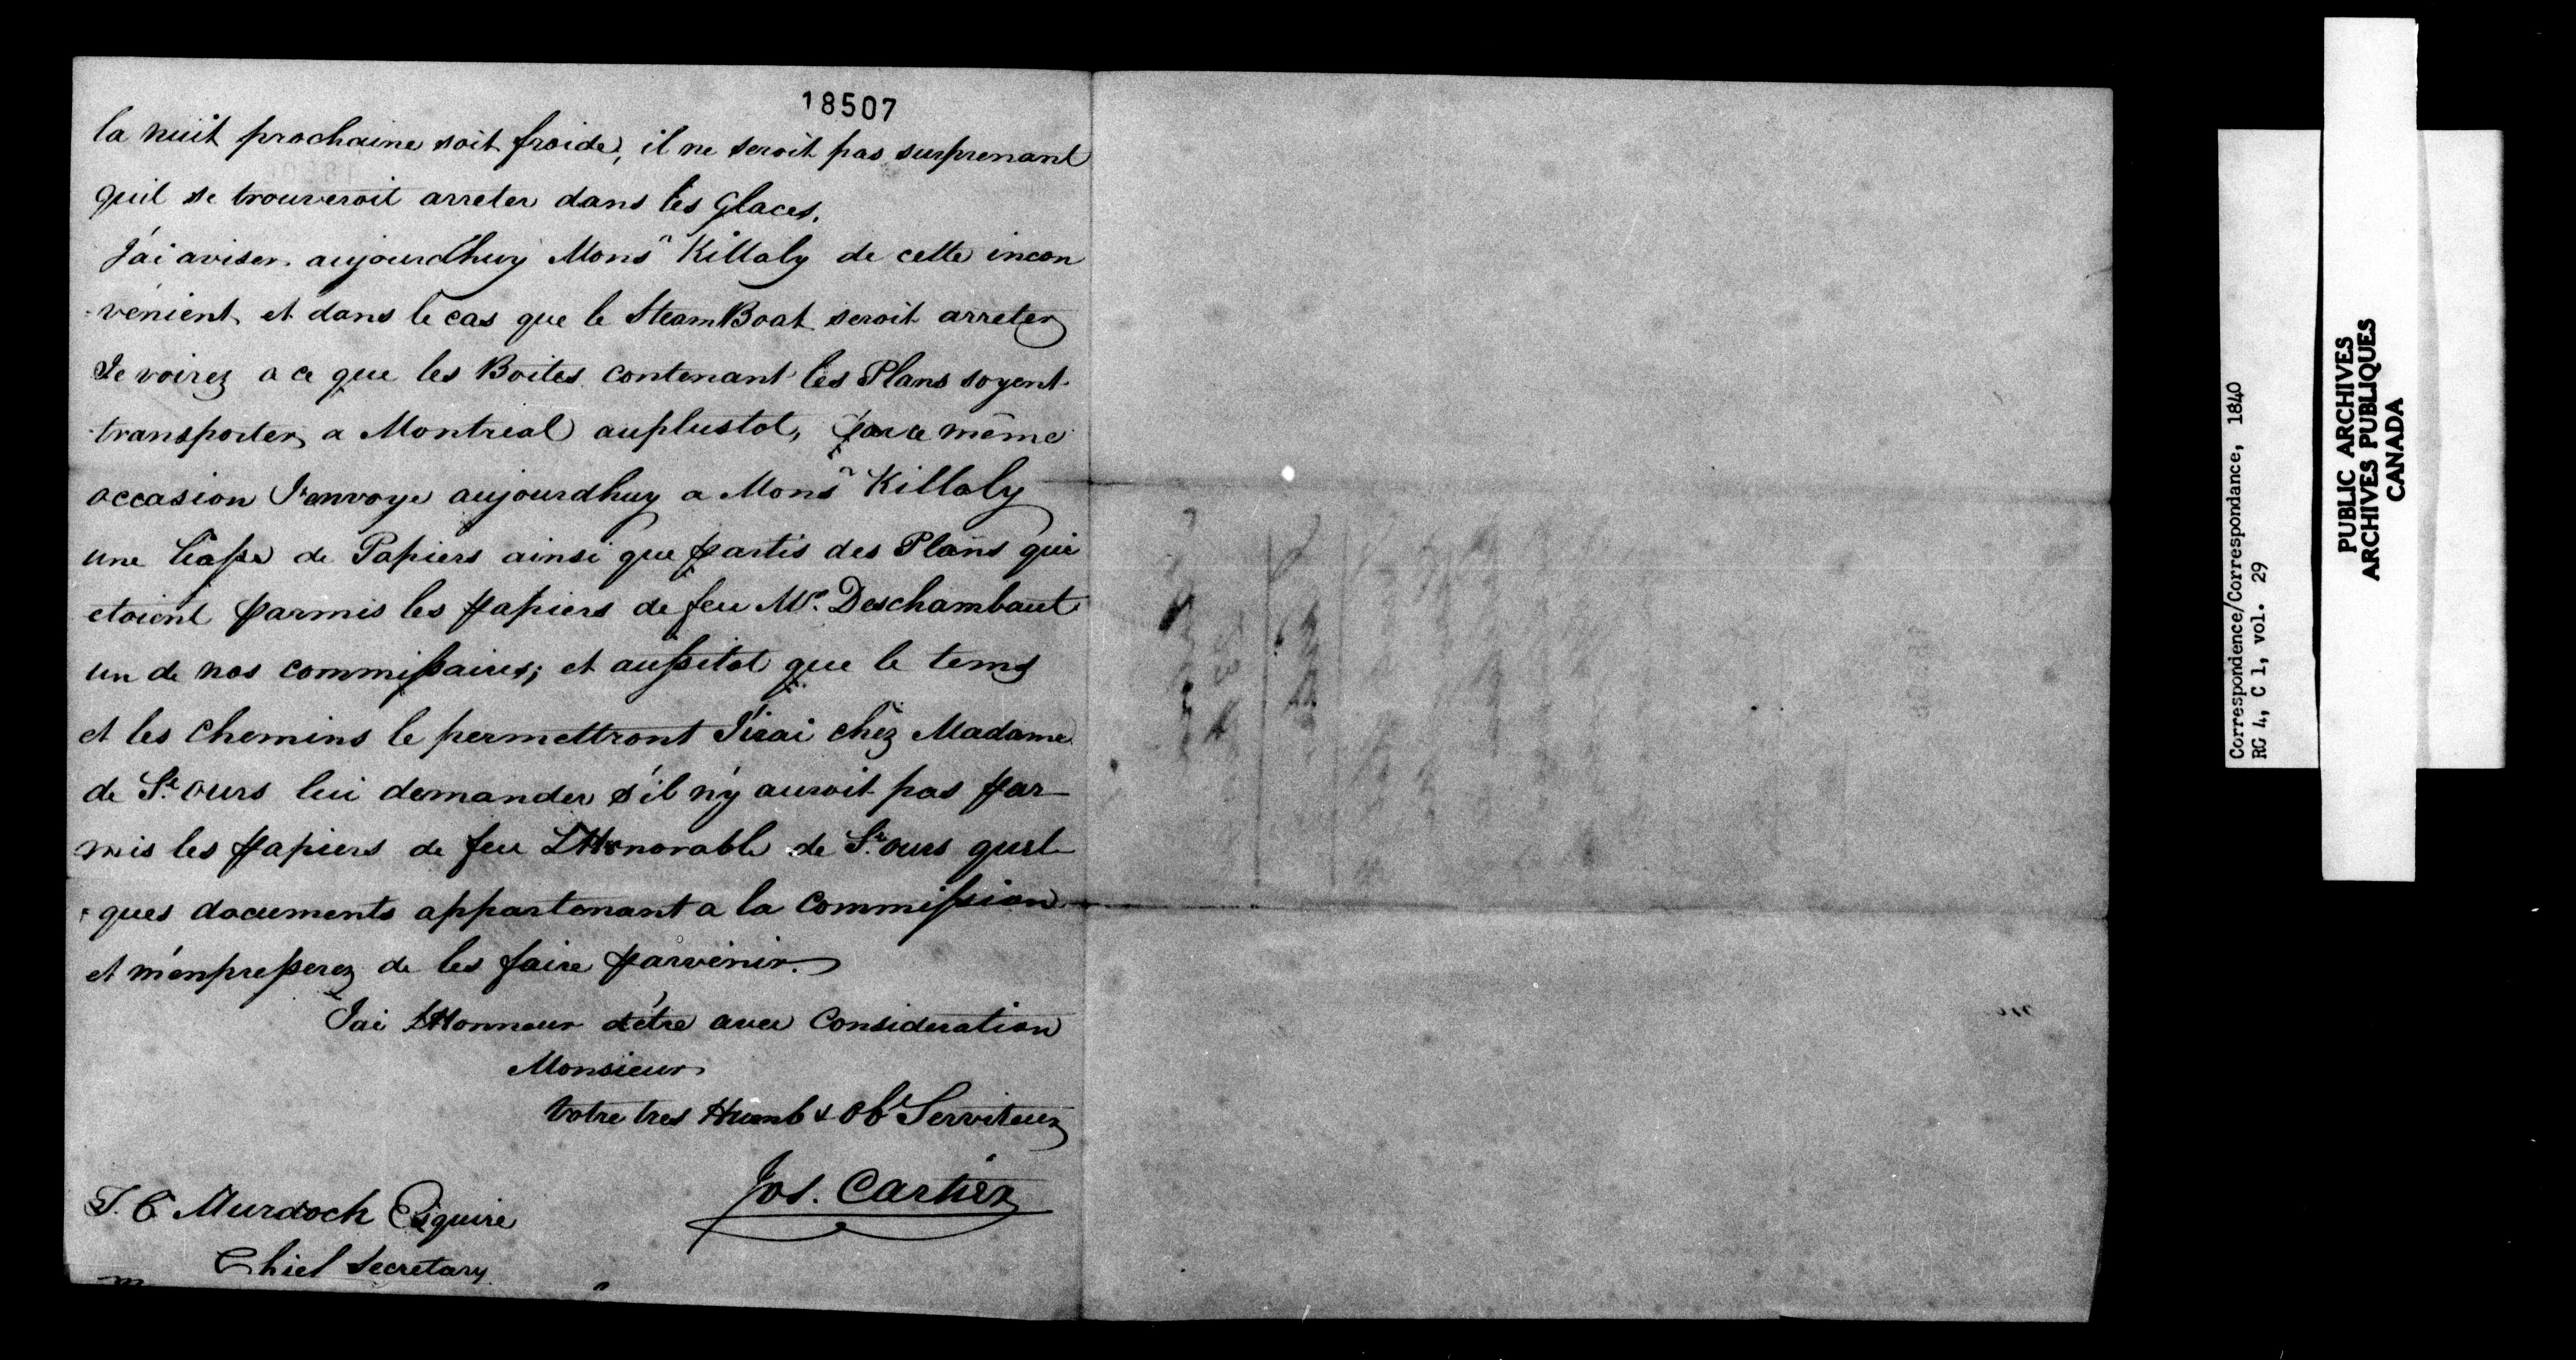 18507
la nuit prochaine soit froide, il ne seroit pas surprenant
quil se trouveroit arreter dans les Glaces.
J'ai aviser aujourdhuy Monsr Killaly de cette incon
-vénient, et dans le cas que le SteamBoat seroit arreter
Je voirez a ce que les Boites contenant les Plans soyent
transporter a Montreal auplustot, par ce même
occasion J'envoye aujourdhuy a Monsr Killaly
une liasse de Papiers ainsi que partis des Plans qui
etoient parmis les papiers de feu Mr. Deschambault
un de nos commissaires; et aussitot que le tems
et les Chemins le permettront J'irai chez Madame
de St. ours lui demander s'il n'y auroit pas par-
mis les papiers de feu L'Honorable de St. ours quel-
ques documents appartenant a la Commission
et m'enpresserez de les faire parvenir.
J'ai L'Honneur d'être avec Consideration
Monsieur
Votre tres Humb & Obt Serviteur
Jos. Cartier
T. C Murdoch Esquire
Chief Secretary
Correspondence/Correspondance, 1840
RG 4, C 1, vol. 29
PUBLIC ARCHIVES
ARCHIVES PUBLIQUES
CANADA